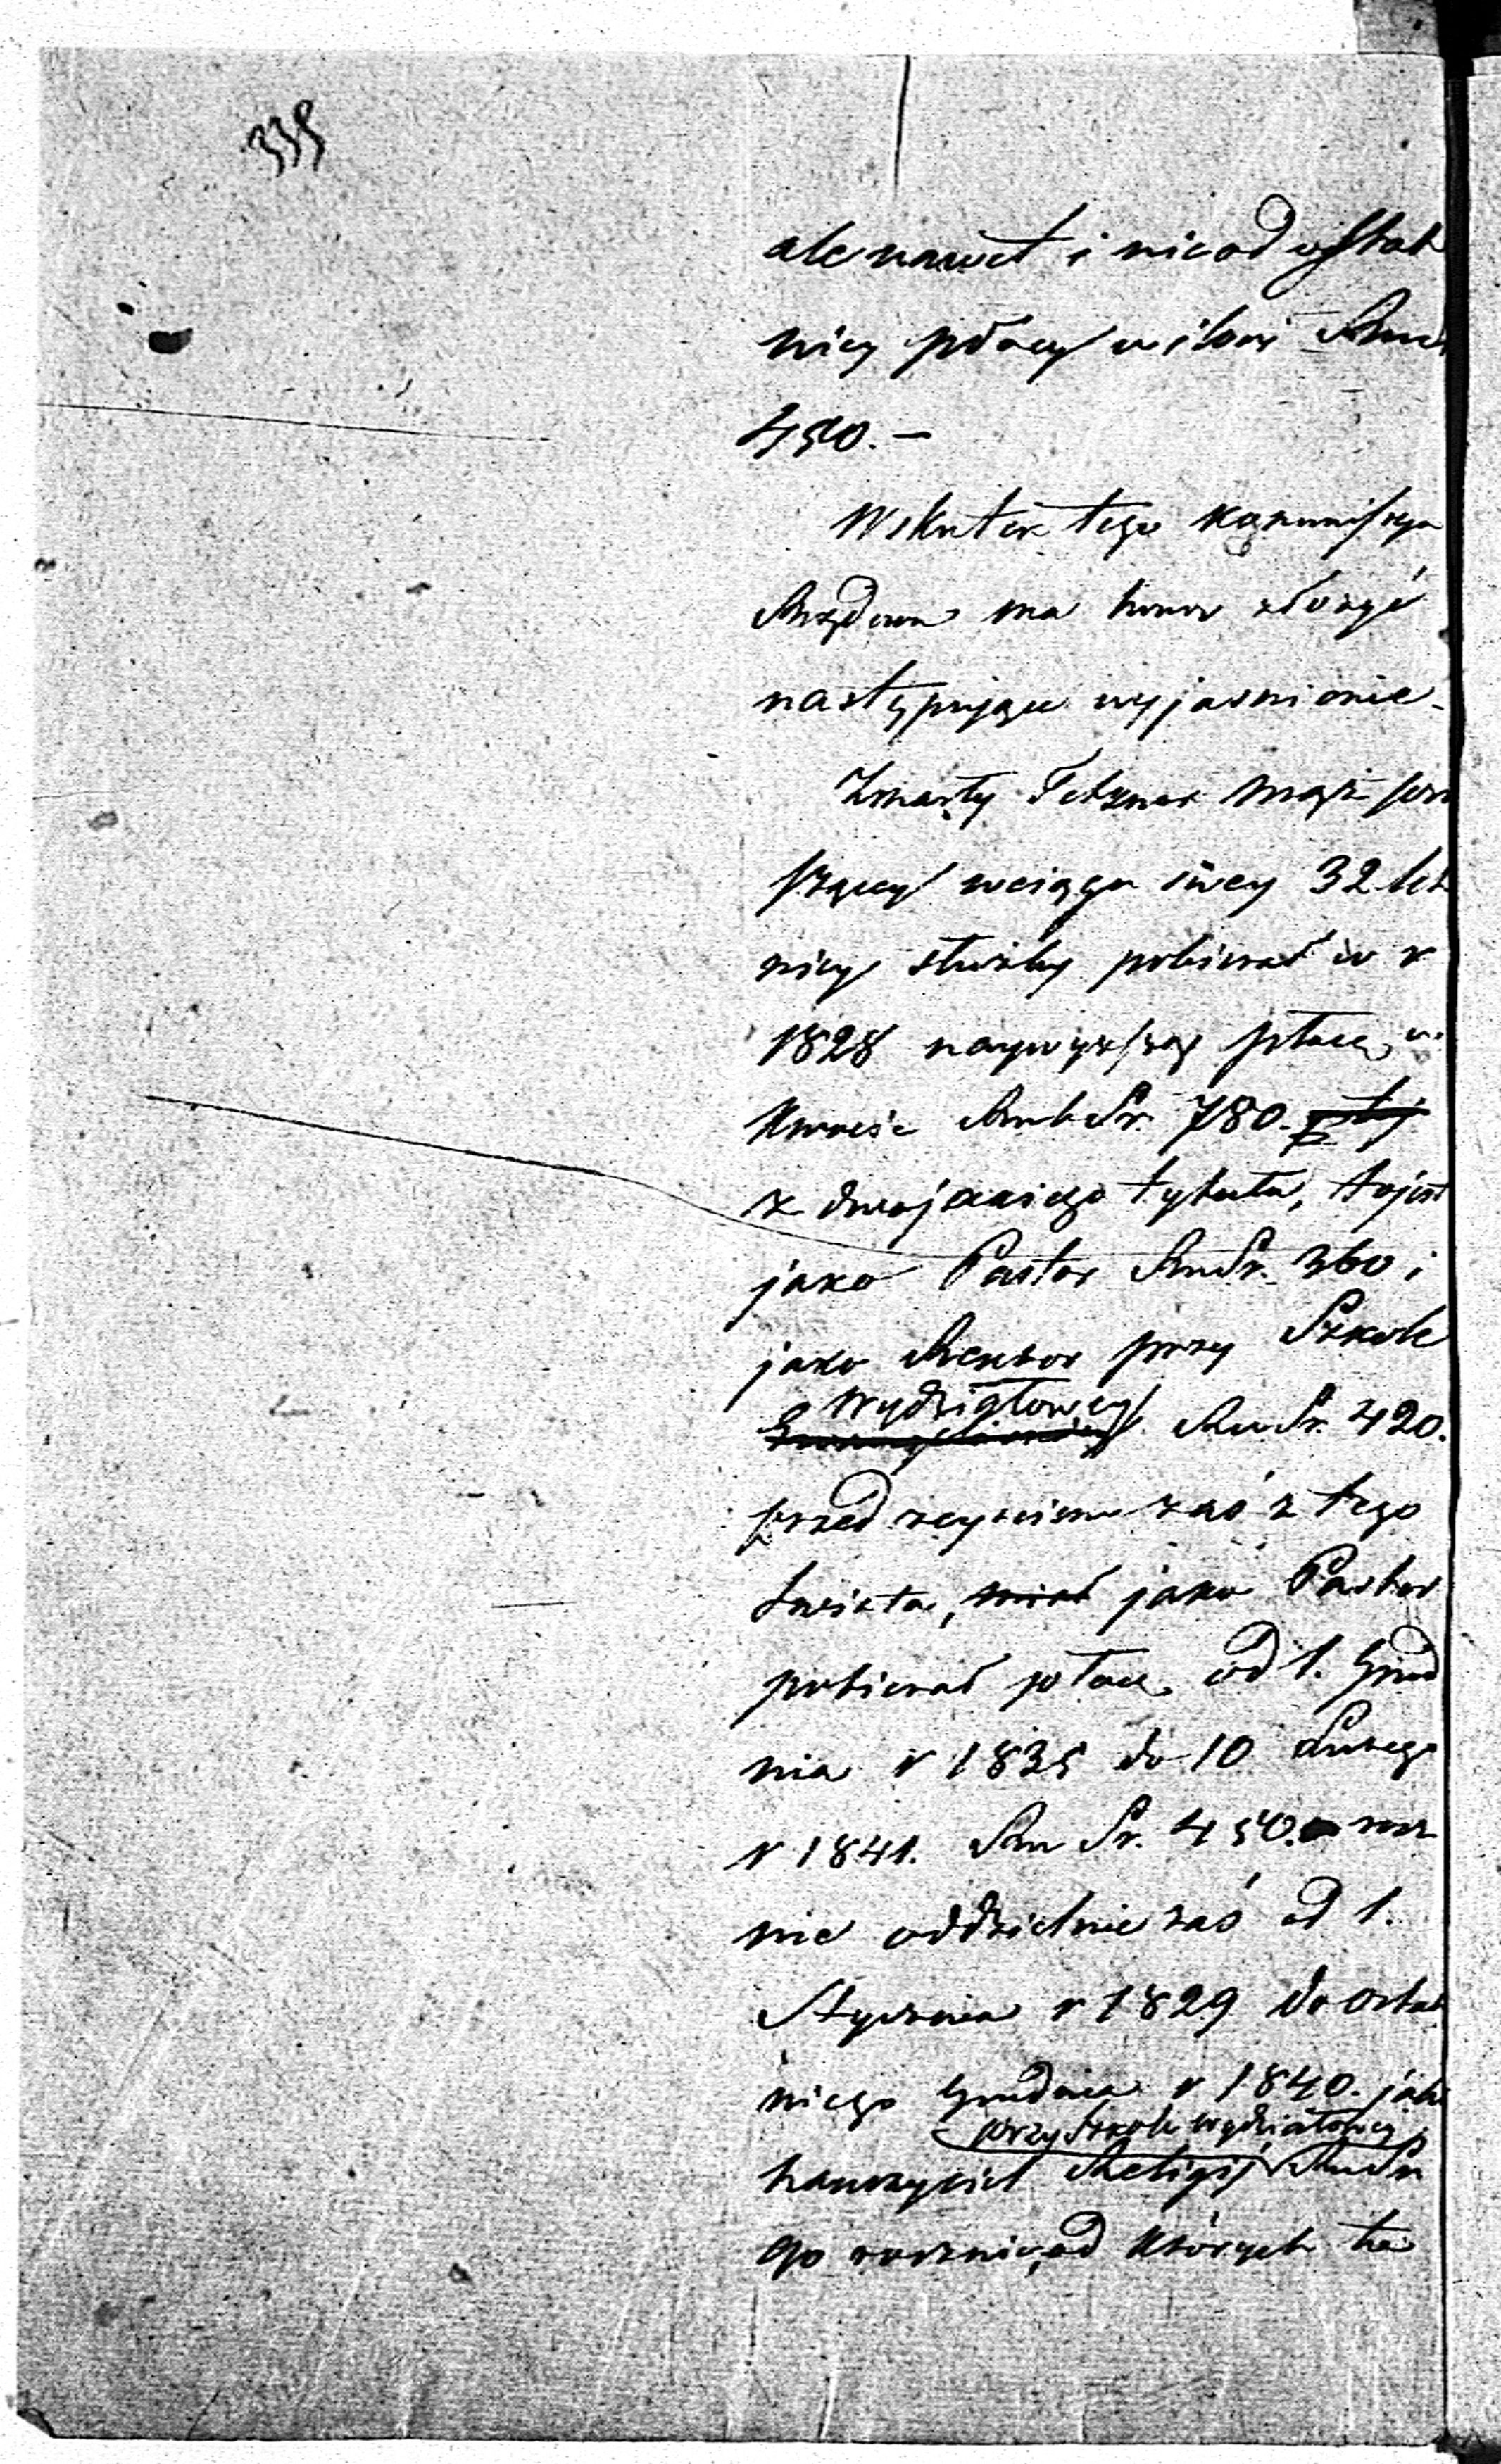 335
ale nawet i nie od ostat
niey płacy w ilości
450.–
Wskutek tego Kommissya
Rządowa ma honor złożyć
następujące wyjasnienie.
Zmarły Tetzner mąż pro
szącey wciągu swey 32 let
niey służby pobierał w r
1828 naywyższą płacę w
Kwocie Rub Sr. 780.
z dwojakiego tytułu, tojest
jako Pastor Rub Sr. 360 i
jako Rektor przy Szkole
Wydziałowey Rub Sr. 420.
przed zeysciem zaś z tego
Swiata, miał jako Pastor
pobierał płacę od 1. Grud
nia r 1835 do 10 Lutego
r 1841. Rub Sr. 450. rocz
nie oddzielnie zaś od 1.
Stycznia r 1829 do ostat
niego Grudnia r 1840. jako
przy Szkole wydziałowey
nauczyciel Religij Rub Sr
90 rocznie, od których to